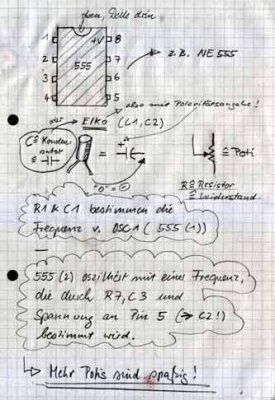 oben, Delle drin
1 +V 8
2 7
3 555 6
4 5
z.B. NE 555
also mit Polaritätsangabe!
Elko (C1, C2)
C ≙ Konden-
sator
=
"-" "+"
≙ Poti
R ≙ Resistor
≙ Widerstand
R1 & C1 bestimmen die
Frequenz v. OSC1 (555 (1))
555 (2) oszilliert mit einer Frequenz,
die durch R7, C3 und
Spannung an Pin 5 (→ C2!)
bestimmt wird.
Mehr Potis sind spaßig!